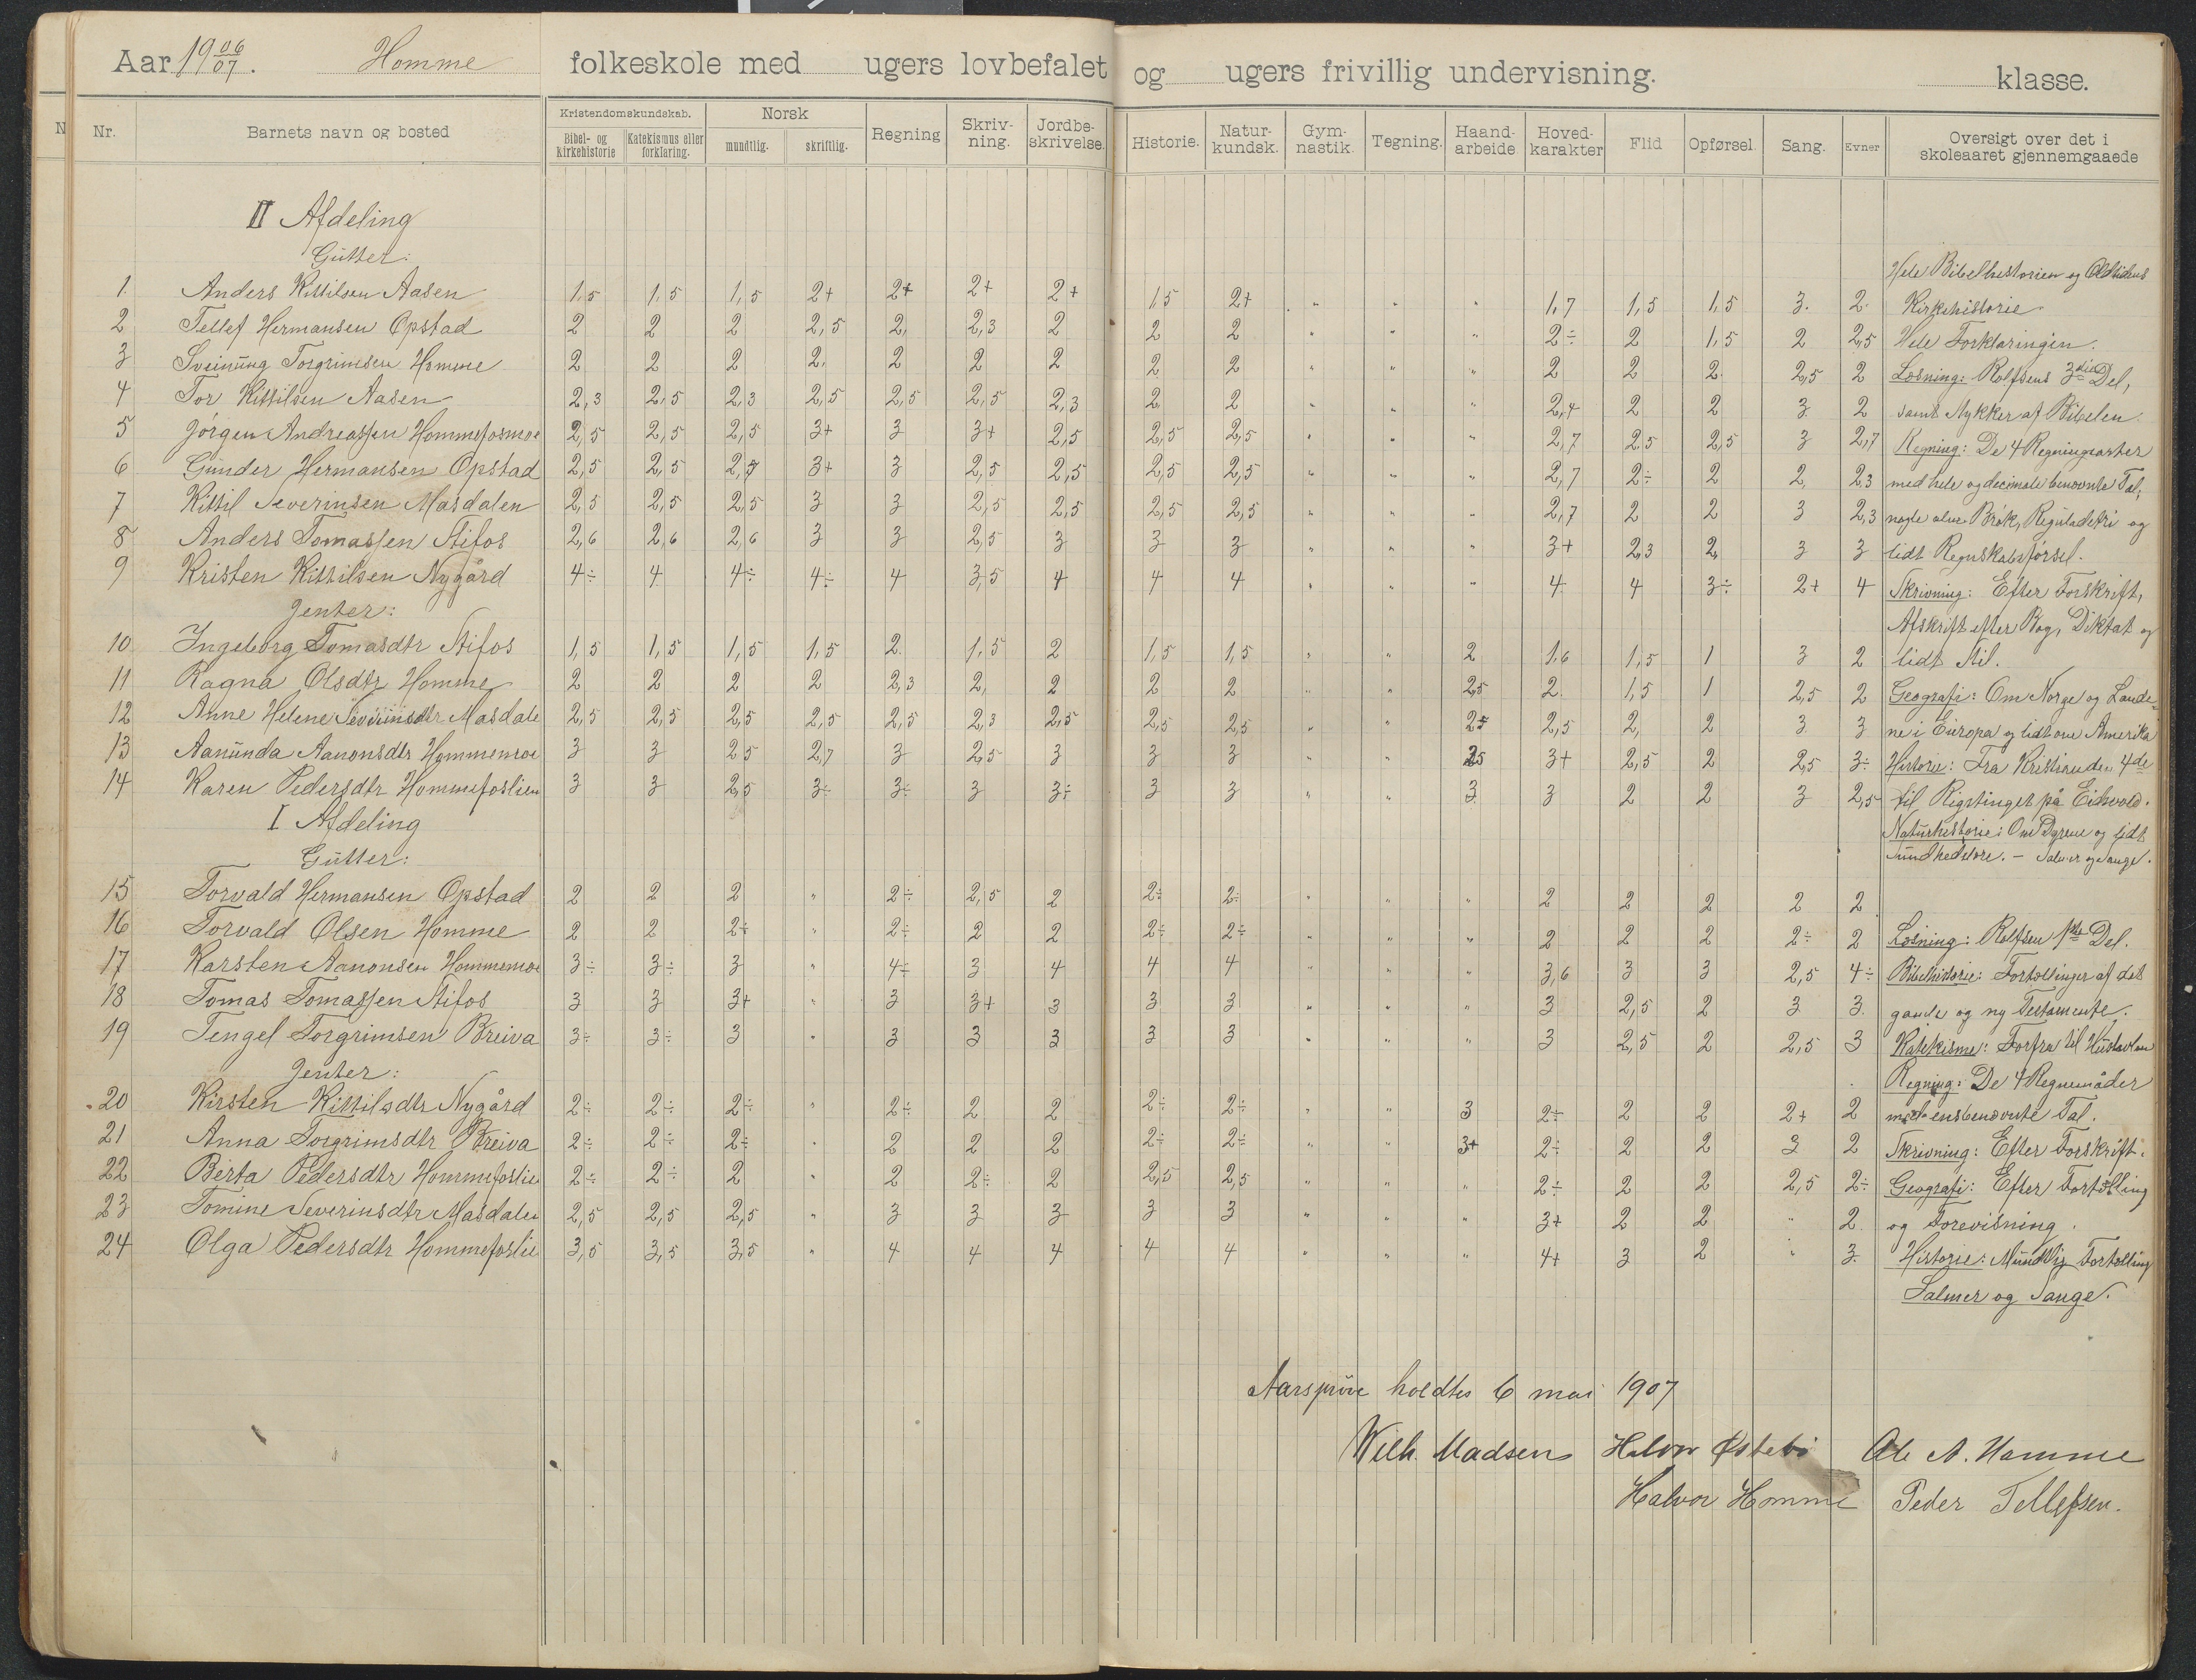 Aar 19 06/07. Homme folkeskole med ugers lovbefalet og ugers frivillig undervisning. klasse.
Nr. Barnets navn og bosted Kristendomskundskab. Bibel- og kirkehistorie Katekismus eller forklaring. Norsk mundtlig. skriftlig. Regning Skriv-ning. Jordbe-skrivelse. Historie. Natur-kundsk. Gym-nastik. Tegning. Haand-arbeide Hoved-karakter Flid Opførsel. Sang. Evner Oversigt over det i skoleaaret gjennemgaaede
II Afdeling
Gutter:
Hele Bibelhistorien og Oldtidens
1 Anders Kittilsen Aasen 1,5 1,5 1,5 2+ 2+ 2+ 2+ 1,5 2+ " " " 1,7 1,5 1,5 3. 2. Kirkehistorie
2 Tellef Hermansen Opstad 2 2 2 2,5 2, 2,3 2 2 2 " " " 2÷ 2 1,5 2 2,5 Hele Forklaringen.
3 Sveinung Torgrimsen Homme 2 2 2 2. 2 2 2 2 2 " " " 2 2 2. 2,5 2 Læsning: Rolfsens 3die Del,
4 Tor Kittilsen Aasen 2,3 2,5 2,3 2,5 2,5 2,5 2,3 2 2 " " " 2,4 2 2 3 2 samt stykker af Bibelen.
5 Jørgen Andreassen Hommefosmoe 2,5 2,5 2,5 3+ 3 3+ 2,5 2,5 2,5 " " " 2,7 2,5 2,5 3 2,7 Regning: De 4 Regningsarter
6 Gunder Hermansen Opstad 2,5 2,5 2,7 3+ 3 2,5 2,5 2,5 2,5 " " " 2,7 2÷ 2 2 2,3 med hele og decimale benævnte Tal,
7 Kittil Severinsen Masdalen 2,5 2,5 2,5 3 3 2,5 2,5 2,5 2,5 " " " 2,7 2 2 3 2,3 nogle Brøk, Reguladetri og
8 Anders Tomassen Stifos 2,6 2,6 2,6 3 3 2,5 3 3 3 " " " 3+ 2,3 2 3 3 lidt Regnskabsførsel.
9 Kristen Kittilsen Nygård 4÷ 4 4÷ 4÷ 4 3,5 4 4 4 " " " 4 4 3÷ 2+ 4 Skrivning: Efter Forskrift,
Jenter: Afskrift efter Bog, Diktat og
10 Ingeborg Tomasdtr Stifos 1,5 1,5 1,5 1,5 2. 1,5 2 1,5 1,5 " " 2 1,6 1,5 1 3 2 lidt Stil.
11 Ragna Olsdtr Homme 2 2 2 2 2,3 2, 2 2 2 " " 2,5 2. 1,5 1 2,5 2 Geografi: Om Norge og Lande-
12 Anne Helene Severinsdtr Masdale 2,5 2,5 2,5 2,5 2,5 2,3 2,5 2,5 2,5 " " 2,5 2,5 2, 2 3 3 ne i Europa og lidt om Amerika
13 Aanunda Aanonsdtr Hommemoe 3 3 2,5 2,7 3 2,5 3 3 3 " " 2,5 3+ 2,5 2 2,5 3÷ Historie: Fra Kristian den 4de
14 Karen Pedersdtr Hommefoslien 3 3 2,5 3÷ 3÷ 3 3÷ 3 3 " " 3 3 2 2 3 2,5 til Rigstinget på Eidsvold.
I Afdeling Naturhistorie: Om Dyrene og lidt
Gutter: Sundhedslære. – Salmer og Sange.
15 Torvald Hermansen Opstad 2 2 2 " 2÷ 2,5 2 2÷ 2÷ " " " 2 2 2 2 2
16 Torvald Olsen Homme 2 2 2÷ " 2÷ 2 2 2÷ 2÷ " " " 2 2 2 2÷ 2 Læsning: Rolfsen 1ste Del.
17 Karsten Aanonsen Hommemoe 3÷ 3÷ 3 " 4÷ 3 4 4 4 " " " 3,6 3 3 2,5 4÷ Bibelhistorie: Fortællinger af det
18 Tomas Tomassen Stifos 3 3 3+ " 3 3+ 3 3 3 " " " 3 2,5 2 3 3. gamle og ny Testamente.
19 Tengel Torgrimsen Breiva 3÷ 3÷ 3 " 3 3 3 3 3 " " " 3 2,5 2 2,5 3 Katekisme: Forfra til Hustavlen
Jenter: Regning: De 4 Regnemåder
20 Kirsten Kittilsdtr Nygård 2÷ 2÷ 2÷ " 2÷ 2 2 2÷ 2÷ " " 3 2÷ 2 2 2+ 2 med ensbenævnte Tal.
21 Anna Torgrimsdtr Breiva 2÷ 2÷ 2÷ " 2 2 2 2÷ 2÷ " " 3+ 2÷ 2 2 3 2 Skrivning: Efter Forskrift.
22 Berta Pedersdtr Hommefoslie 2÷ 2÷ 2 " 2 2÷ 2 2,5 2,5 " " " 2÷ 2 2 2,5 2÷ Geografi: Efter Fortælling
23 Tomine Severinsdtr Masdalen 2,5 2,5 2,5 " 3 3 3 3 3 " " " 3+ 2 2 " 2 og Forevisning.
24 Olga Pedersdtr Hommefoslie 3,5 3,5 3,5 " 4 4 4 4 4 " " " 4+ 3 2 " 3. Historie: Mundtlig Fortælling
Salmer og Sange.
Aarsprøve holdtes 6 mai 1907
Wilh. Madsen Halvor Østebø Ole A. Homme
Halvor Homme Peder Tellefsen.